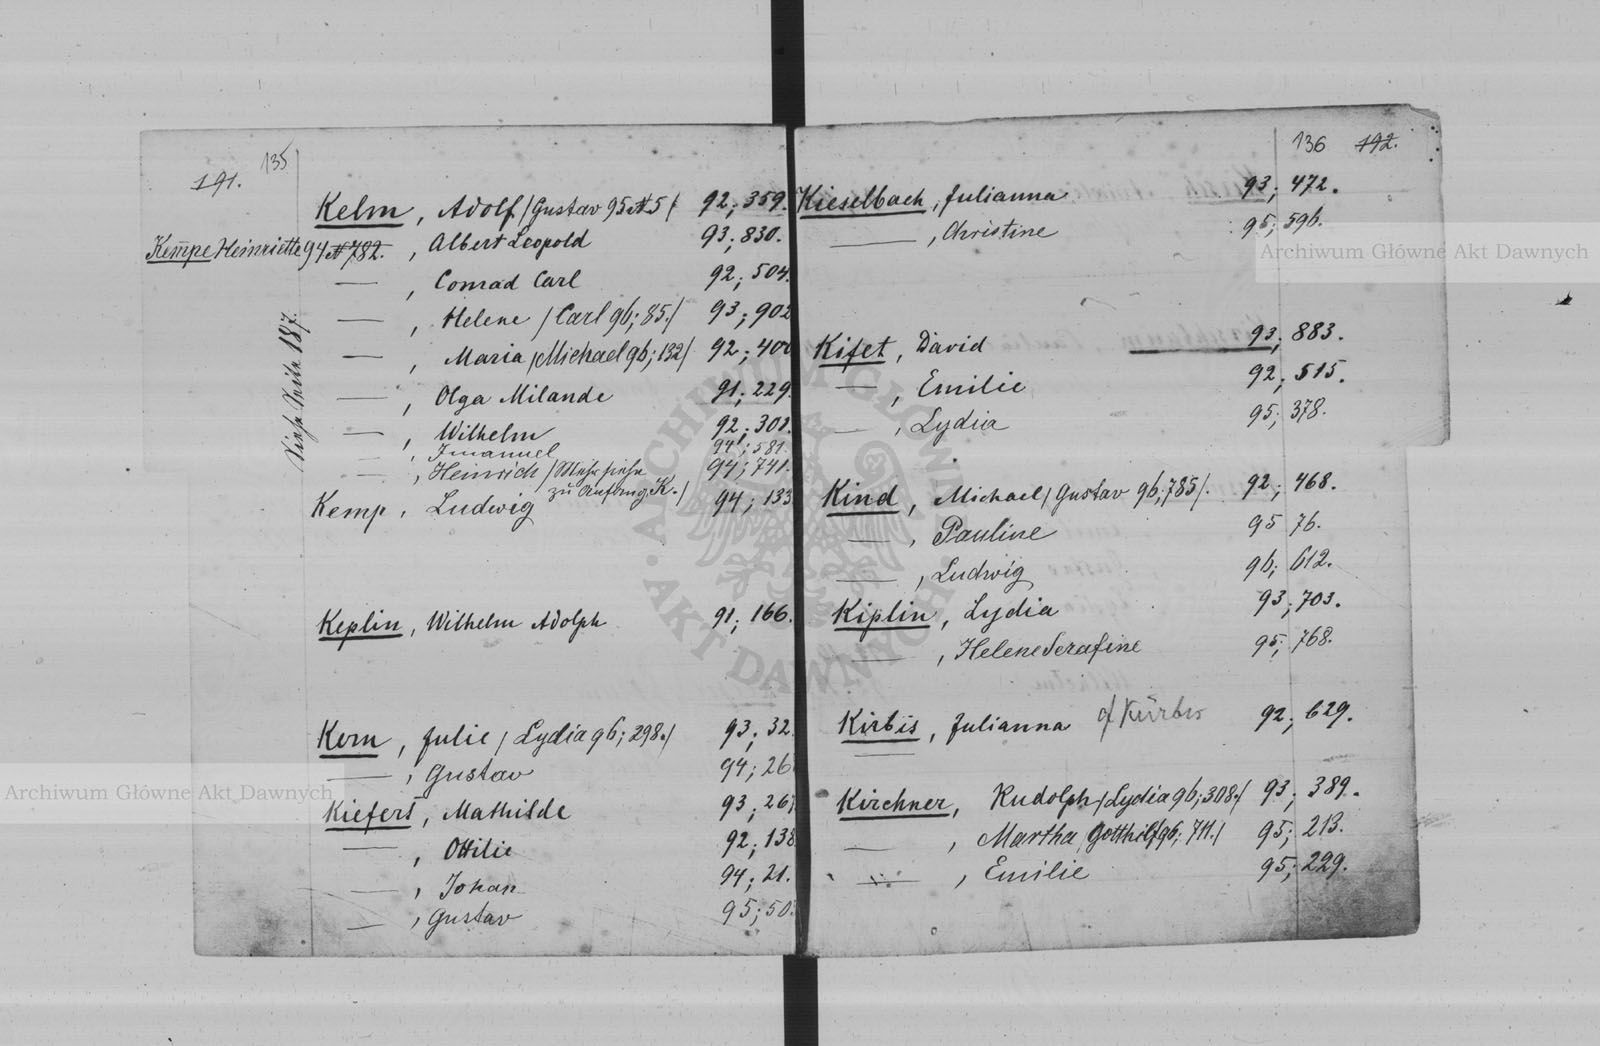 191. 135
Kelm, Adolf /Gustav 95 № 5/ 92; 359.
Kempe Heinriette 94 № 782.
, Albert Leopold 93; 830.
— , Conrad Carl 92; 504.
— , Helene /Carl 96; 85./ 93; 902
— , Maria /Michael 96; 132/ 92; 400
— , Olga Milande 91; 229.
— , Wilhelm 92; 301.
— , Imanuel 94; 581.
— , Heinrich /Mehr siehe 94; 741.
zu Anfang K./
Siehe Seite 187.
Kemp, Ludwig 94; 133
Keplin, Wilhelm Adolph 91; 166.
Kern, Julie /Lydia 96; 298./ 93; 32
— , Gustav 94; 26
Kiefert, Mathilde 93; 267
— , Ottilie 92; 138
— , Johan 94; 21.
— , Gustav 95; 50
136 192.
Kieselbach, Julianna 93; 472.
— , Christine 95; 596.
Kifet, David 93; 883.
— , Emilie 92; 515.
— , Lydia 95; 378.
Kind, Michael /Gustav 96; 785/. 92; 468.
— , Pauline 95 76.
— , Ludwig 96; 612.
Kiplin, Lydia 93; 703.
— , Helene Serafine 95; 768.
Kirbis, Julianna cf Kürbis 92; 629.
Kirchner, Rudolph /Lydia 96; 308./ 93; 389.
— , Martha /Gotthilf 96; 711./ 95; 213.
— , Emilie 95; 229.
Archiwum Główne Akt Dawnych
Archiwum Główne Akt Dawnych
ARCHIWUM GŁÓWNE AKT DAWNYCH